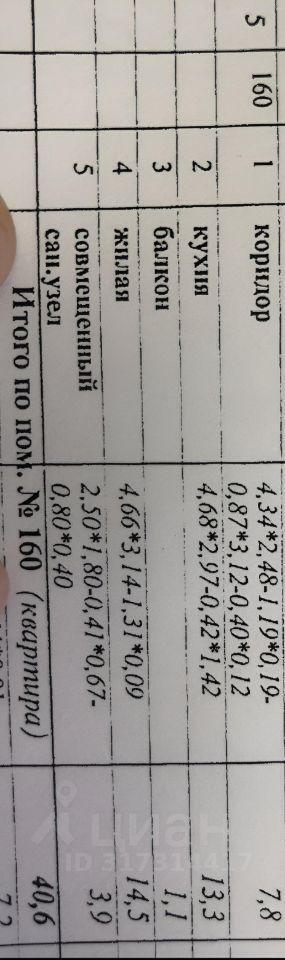 5 160 1 коридор 4,34*2,48-1,19*0,19- 7,8
0,87*3,12-0,40*0,12
2 кухня 4,68*2,97-0,42*1,42 13,3
3 балкон 1,1
4 жилая 4,66*3,14-1,31*0,09 14,5
5 совмещенный 2,50*1,80-0,41*0,67- 3,9
сан.узел 0,80*0,40
Итого по пом. № 160 (квартира) 40,6
циан